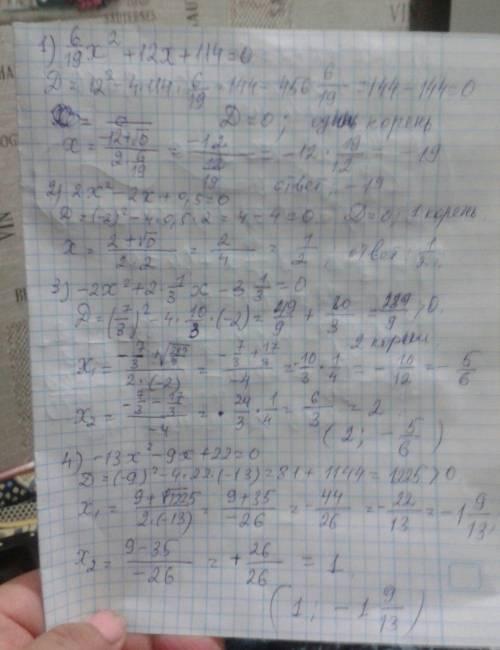 1) 6/19 x² + 12x + 114 = 0
D = 12² - 4·114·6/19 = 144 - 456·6/19 = 144 - 144 = 0
D = 0; один корень
x = (-12+√0)/(2·6/19) = -12/(12/19) = -12·19/12 = -19
ответ: -19
2) 2x² - 2x + 0,5 = 0
D = (-2)² - 4·0,5·2 = 4 - 4 = 0 D = 0, 1 корень
x = (2+√0)/(2·2) = 2/4 = 1/2, ответ: 1/2.
3) -2x² + 2 1/3 x - 3 1/3 = 0
D = (7/3)² - 4·10/3·(-2) = 49/9 + 80/3 = 289/9 > 0
2 корня
x₁ = (-7/3 + √(289/9))/(2·(-2)) = (-7/3 + 17/3)/(-4) = -10/3·1/4 = -10/12 = -5/6
x₂ = (-7/3 - 17/3)/(-4) = 24/3·1/4 = 6/3 = 2
(2; -5/6)
4) -13x² - 9x + 22 = 0
D = (-9)² - 4·22·(-13) = 81 + 1144 = 1225 > 0
x₁ = (9+√1225)/(2·(-13)) = (9+35)/(-26) = -44/26 = -22/13 = -1 9/13
x₂ = (9-35)/(-26) = +26/26 = 1
(1; -1 9/13)